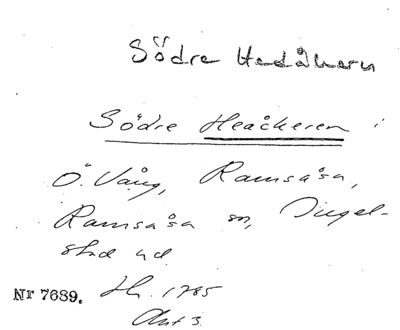 Södre Hedåkern
Södre Heåckeren i
Ö. Vång, Ramsåsa,
Ramsåsa sn, Ingel-
stad hd
Nr 7689. H. 1785
Akt 3.